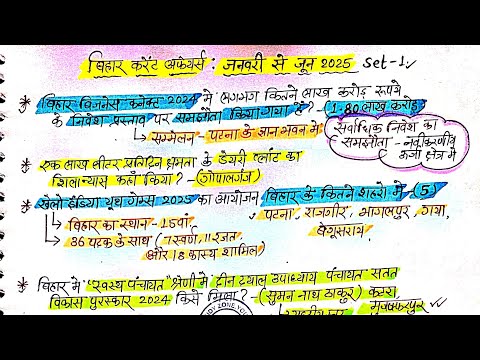 बिहार करेंट अफेयर्स : जनवरी से जून 2025 Set-1
* बिहार बिजनेस कनेक्ट 2024 में लगभग कितने लाख करोड़ रूपये
के निवेश प्रस्ताव पर समझौता किया गया है? - (1.80 लाख करोड़)
→ सम्मेलन - पटना के ज्ञान भवन में
सर्वाधिक निवेश का
समझौता - नवीकरणीय
ऊर्जा क्षेत्र में
* एक लाख लीटर प्रतिदिन क्षमता के डेयरी प्लांट का
शिलान्यास कहाँ किया? - (गोपालगंज)
* खेलो इंडिया यूथ गेम्स 2025 का आयोजन बिहार के कितने शहरो में - (5)
→ बिहार का स्थान - 15वां
पटना, राजगीर, भागलपुर, गया,
बेगूसराय
→ 36 पदक के साथ (7 स्वर्ण, 11 रजत,
और 18 कांस्य शामिल)
* बिहार में "स्वस्थ पंचायत" श्रेणी में दीन दयाल उपाध्याय पंचायत सतत
विकास पुरस्कार 2024 किसे मिला? - (सुमन नाथ ठाकुर) कटरा,
मुजफ्फरपुर